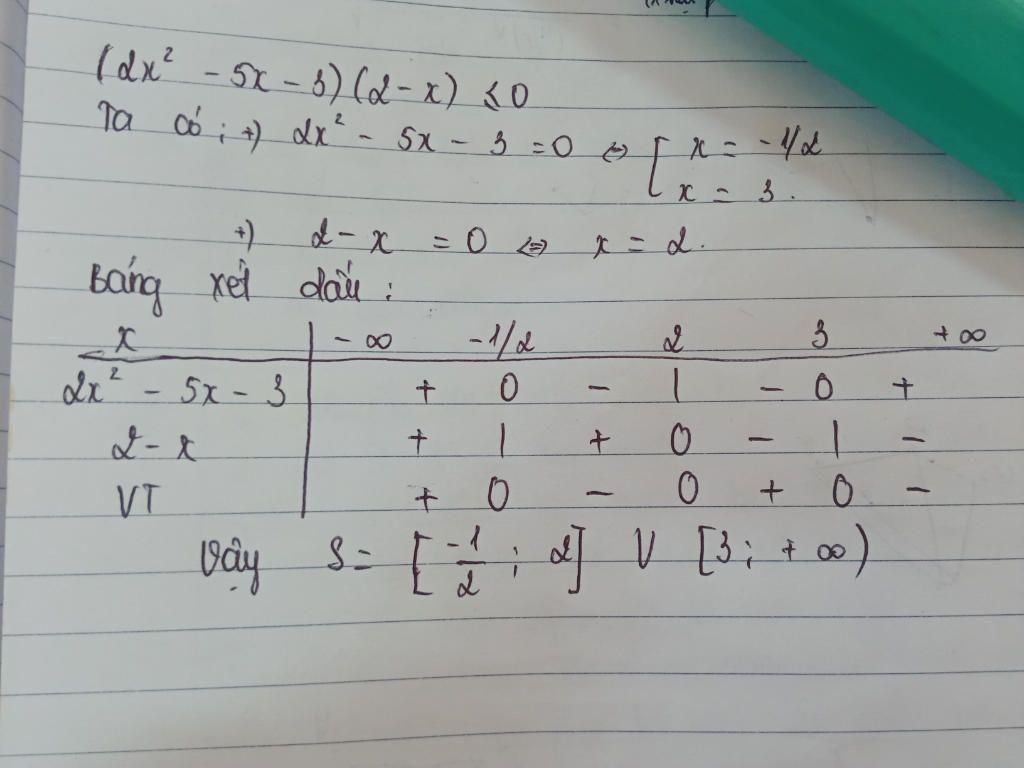 (2x² - 5x - 3)(2 - x) ≤ 0
Ta có: +) 2x² - 5x - 3 = 0 ⇔ [ x = -1/2
x = 3.
+) 2 - x = 0 ⇔ x = 2.
Bảng xét dấu:
x | -∞ -1/2 2 3 +∞
2x² - 5x - 3 | + 0 - | - 0 +
2 - x | + | + 0 - | -
VT | + 0 - 0 + 0 -
Vậy S = [-1/2; 2] ∪ [3; +∞)